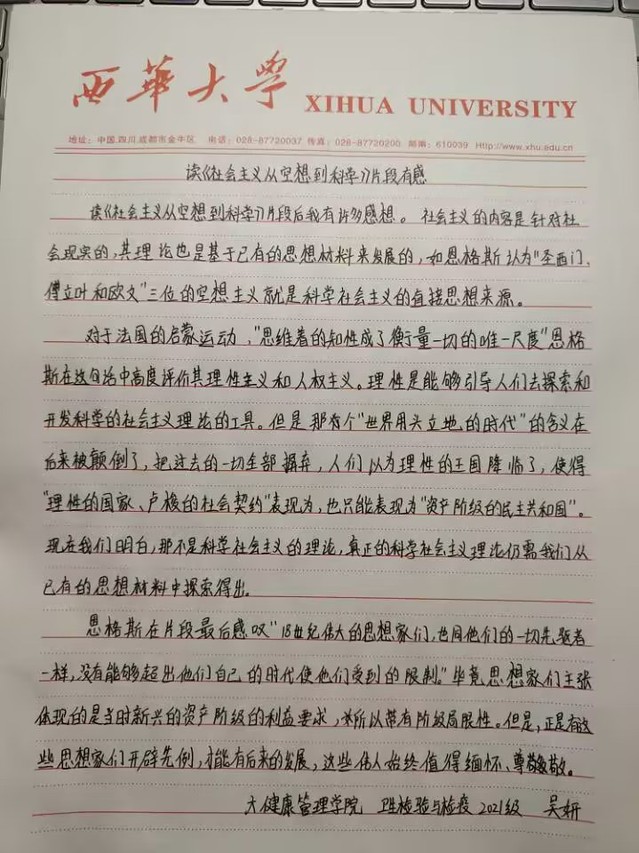 西華大學 XIHUA UNIVERSITY
地址：中国.四川.成都市金牛区 电话：028-87720037 传真：028-87720200 邮编：610039 Http://www.xhu.edu.cn
读《社会主义从空想到科学》片段有感
读《社会主义从空想到科学》片段后我有许多感想。社会主义的内容是针对社
会现实的，其理论也是基于已有的思想材料来发展的，如恩格斯认为"圣西门、
傅立叶和欧文"三位的空想主义就是科学社会主义的直接思想来源。
对于法国的启蒙运动，"思维着的知性成了衡量一切的唯一尺度"恩格
斯在这句话中高度评价其理性主义和人权主义。理性是能够引导人们去探索和
开发科学的社会主义理论的工具。但是那有个"世界用头立地的时代"的含义在
后来被颠倒了，把过去的一切全部摒弃，人们以为理性的王国降临了，使得
"理性的国家、卢梭的社会契约"表现为，也只能表现为"资产阶级的民主共和国"。
现在我们明白，那不是科学社会主义的理论，真正的科学社会主义理论仍需我们从
已有的思想材料中探索得出。
恩格斯在片段最后感叹"18世纪伟大的思想家们，也同他们的一切先驱者
一样，没有能够超出他们自己的时代使他们受到的限制。"毕竟思想家们主张
体现的是当时新兴的资产阶级的利益要求，所以带有阶级局限性。但是，正是有这
些思想家们开辟先例，才能有后来的发展，这些伟人始终值得缅怀、尊敬。
大健康管理学院 卫生检验与检疫 2021级 吴妍